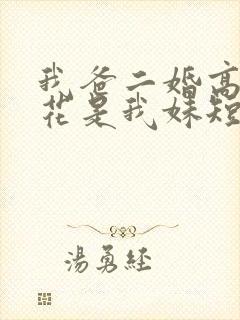 我爸二婚高
花是我妹短
湯勇經